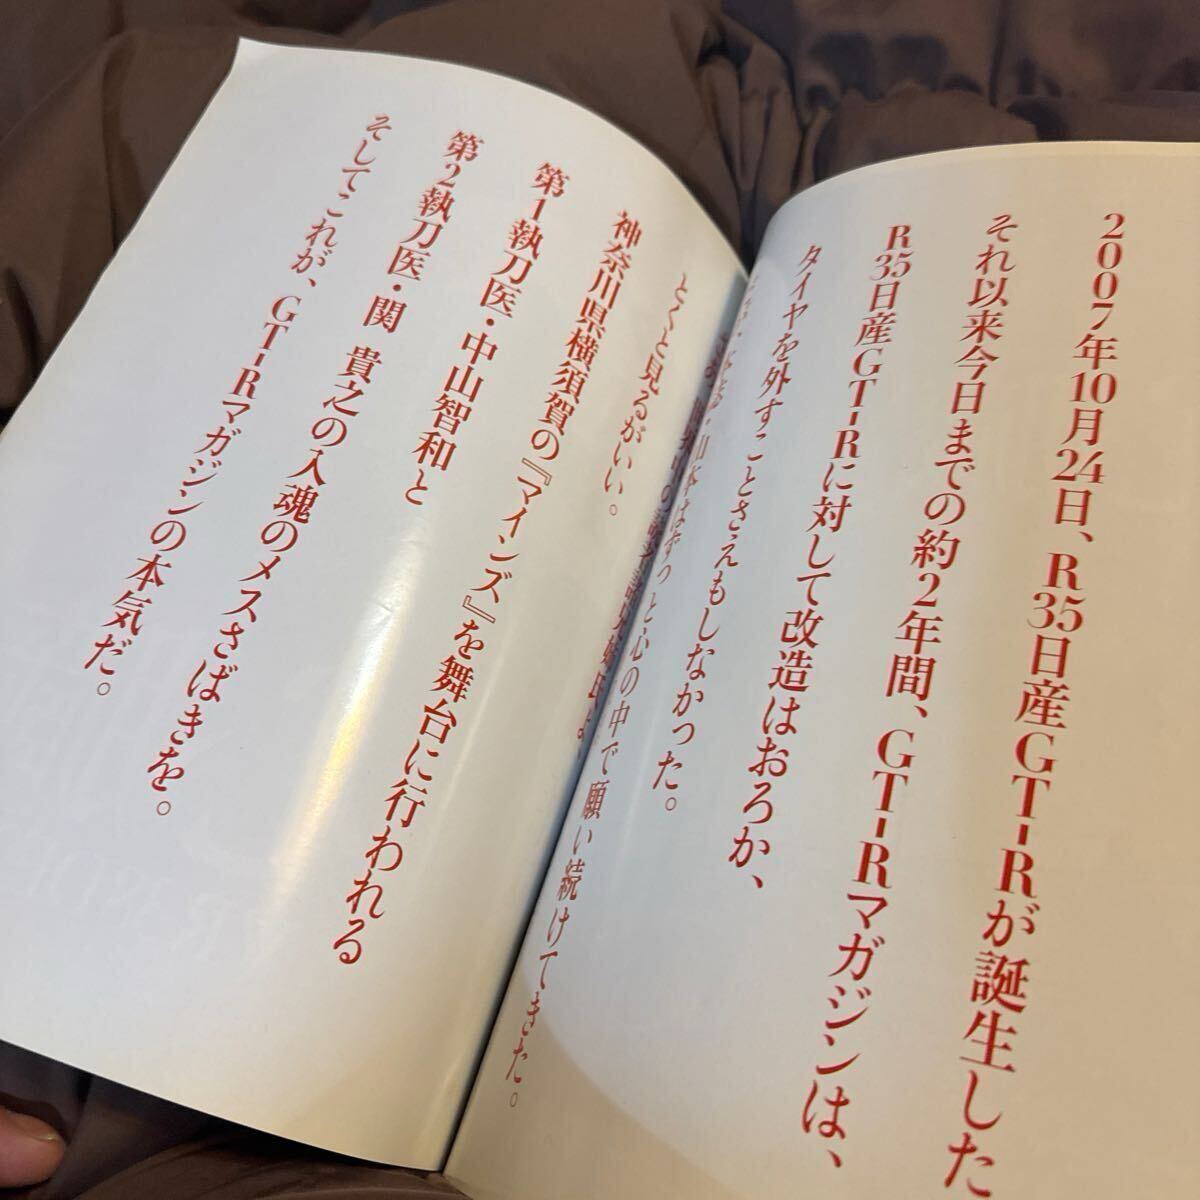 2007年10月24日、R35日産GT-Rが誕生した
それ以来今日までの約2年間、GT-Rマガジンは、
R35日産GT-Rに対して改造はおろか、
タイヤを外すことさえもしなかった。
はずっと心の中で願い続けてきた。
とくと見るがいい。
神奈川県横須賀の『マインズ』を舞台に行われる
第1執刀医・中山智和と
第2執刀医・関 貴之の入魂のメスさばきを。
そしてこれが、GT-Rマガジンの本気だ。